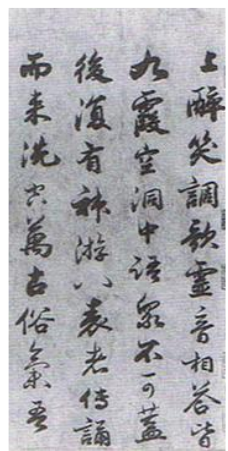 上醉笑調歌靈音相答皆
九霞空洞中語衆不可蓋
後復有神游八表者傳誦
而来洗空萬古俗氣吾